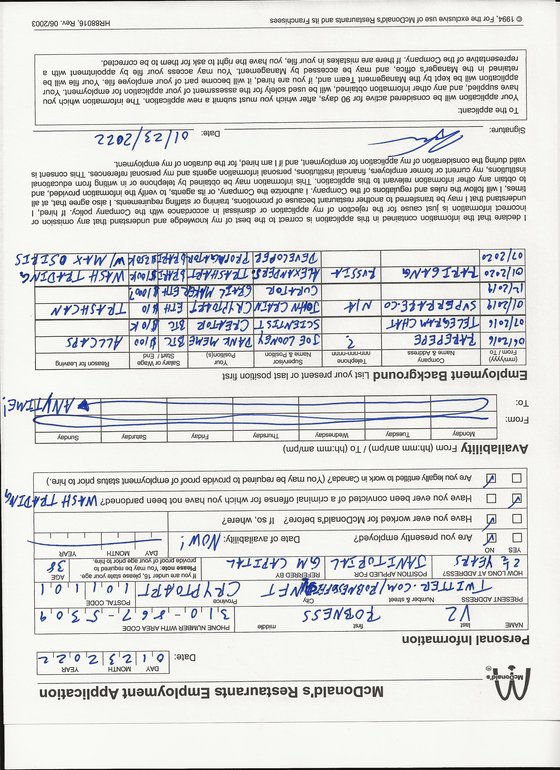 McDonald's
McDonald's Restaurants Employment Application
Date: 01 23 2022
DAY MONTH YEAR
Personal Information
NAME last first middle PHONE NUMBER WITH AREA CODE
V2 ROBNESS 310-867-5309
PRESENT ADDRESS Number & Street City Province POSTAL CODE
TWITTER.COM/ROBNESSOFFICIAL NFT CRYPTOART 101101
HOW LONG AT ADDRESS? POSITION APPLIED FOR REFERRED BY If you are under 16, please state your age. AGE
2 1/2 YEARS JANITORIAL GM CAPITAL Please note: You may be required to provide proof of your age prior to hire. 38
YES NO
Are you presently employed? Date of availability: NOW!
DAY MONTH YEAR
Have you ever worked for McDonald's before? If so, where?
Have you ever been convicted of a criminal offense for which you have not been pardoned? WASH TRADING
Are you legally entitled to work in Canada? (You may be required to provide proof of employment status prior to hire.)
Availability From (hh:mm am/pm) / To (hh:mm am/pm)
Monday Tuesday Wednesday Thursday Friday Saturday Sunday
From:
To: ANYTIME!
Employment Background List your present or last position first
From / To (mm/yyyy) Company Name & Address Telephone nnn-nnn-nnnn Supervisor Name & Position Your Position(s) Salary or Wage Start / End Reason for Leaving
06/2016 RAREPEPE ? JOE LOONEY DANK MEME BTC $100 ALLCAPS
07/2016 TELEGRAM CHAT SCIENTIST CREATOR BTC $10K
01/2019 SUPERRARE.CO N/A JOHN CRAIN CRYPTOART ETH $10 TRASHCAN
12/2019 CURATOR GRAIL MAKER ETH $100?
01/2020 RARIBLE RUSSIA ALEXANDER TRASHART $RARI $100K WASH TRADING
07/2020 DEVELOPER PROPAGATOR $RARI $250K W/ MAX OSIRIS
I declare that the information contained in this application is correct to the best of my knowledge and understand that any omission or
incorrect information is just cause for the rejection of my application or dismissal in accordance with the Company policy. If hired, I
understand that I may be transferred to another restaurant because of promotions, training or staffing requirements. I also agree that, at all
times, I will follow the rules and regulations of the Company. I authorize the Company, or its agents, to verify the information provided, and
to obtain any other information relevant to this application. This information may be obtained by telephone or in writing from educational
institutions, my current or former employers, financial institutions, personal information agents and my personal references. This consent is
valid during the consideration of my application for employment, and if I am hired, for the duration of my employment.
Signature: Date: 01/23/2022
To the applicant:
Your application will be considered active for 90 days, after which you must submit a new application. The information which you
have supplied, and any other information obtained, will be used solely for the assessment of your application for employment. Your
application will be kept by the Management Team and, if you are hired, it will become part of your employee file. Your file will be
retained in the Manager's office, and may be accessed by Management. You may access your file by appointment with a
representative of the Company. If there are mistakes in your file, you have the right to ask for them to be corrected.
© 1994, For the exclusive use of McDonald's Restaurants and its Franchisees HR88016, Rev. 06/2003